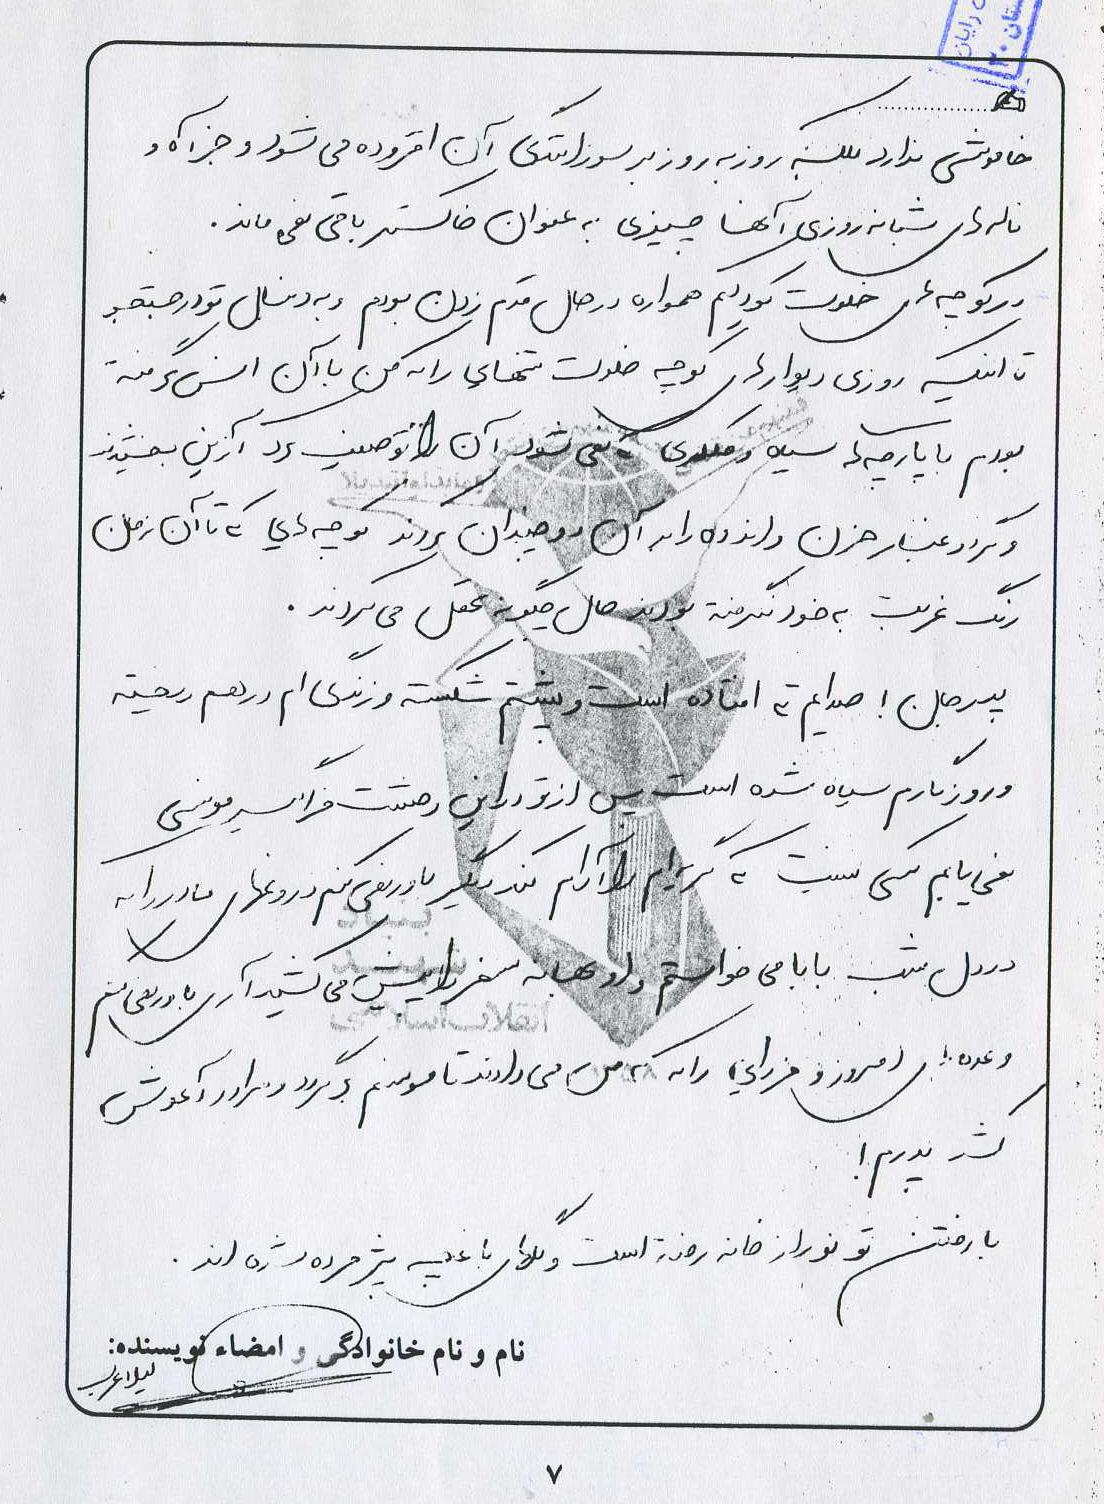 خاموشی ندارد بلکه روز به روز بر سوزانندگی آن افزوده می شود و جز آه و
ناله های شبانه روزی آنها چیزی به عنوان خاکستر باقی نمی ماند.
در کوچه های خلوت کودکیم همواره در حال قدم زدن بودم و به دنبال تو در جستجو
تا اینکه روزی دیوارهای کوچه خلوت تنهایی را که من با آن انس گرفته
بودم با پارچه های سیاه و که نمی شود آن را توصیف کرد آزین بخشیدند
و گرد و غبار حزن و اندوه را به آن دو چندان کردند کوچه هایی که تا آن زمان
رنگ غربت به خود نگرفته بودند حال چگونه تحمل می کردند.
پدر جان! صدایم ته افتاده است و پشتم شکسته و زندگی ام در هم ریخته
و روزگارم سیاه شده است پس از تو در این وحشت فراگیر مونسی
نمی یابم کسی نیست که گریه ام را آرام کند دیگر باور نمی کنم دروغهای مادر را که
در دل شب بابا می خواستم و او بهانه سفر را پیش می کشید آری باور نمی کنم
وعده های امروز و فردایی را که به من می دادند تا مونسم برگردد و مرا در آغوش
کشد پدرم!
با رفتن تو نور از خانه رفته است و گلهای باغچه پژمرده شده اند.
نام و نام خانوادگی و امضاء نویسنده:
لیلا عرب
۷